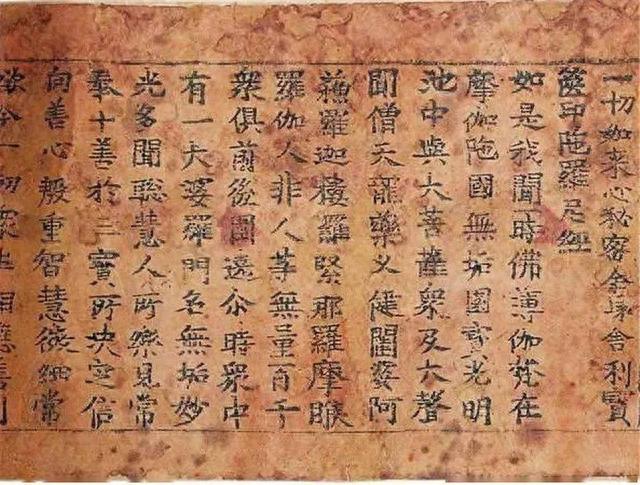 一切如来心秘密全身舍利寳
篋印陀羅尼經
如是我聞一時佛薄伽梵在
摩伽陀國無垢園寳光明
池中與大菩薩衆及大聲
聞僧天龍藥叉健闥婆阿
蘓羅迦樓羅緊那羅摩睺
羅伽人非人等無量百千
衆俱前後圍遶尒時衆中
有一大婆羅門名無垢妙
光多聞聡慧人所樂見常
奉十善於三寳所决定信
向善心殷重智慧微細常
令一切衆生相應善利